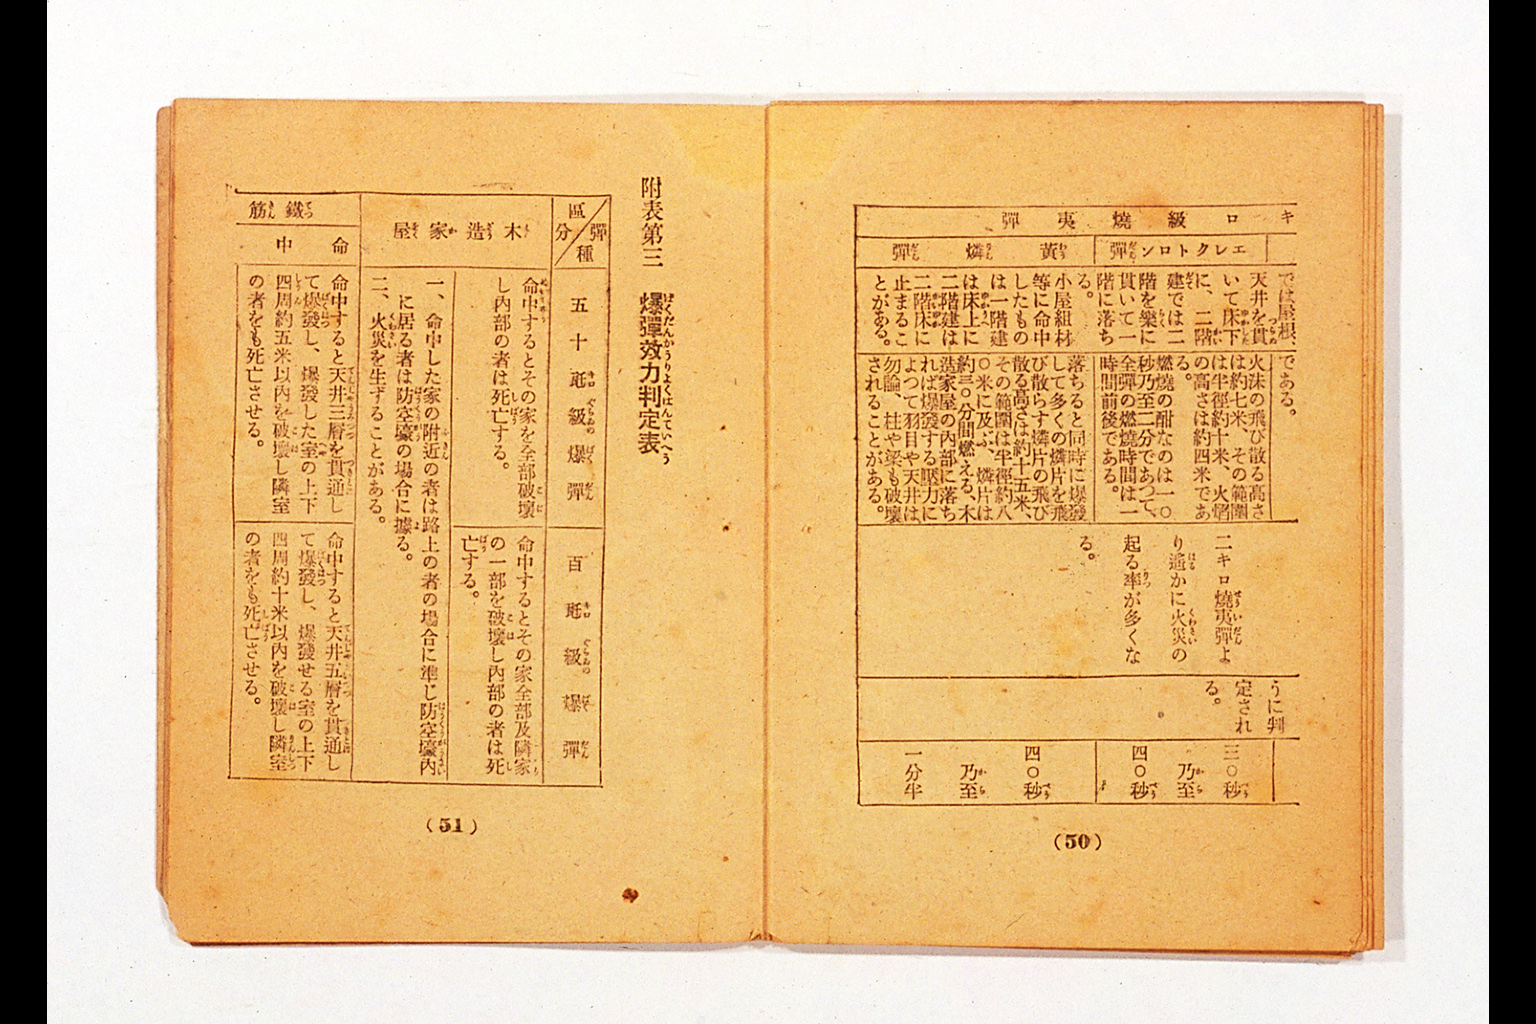 キロ級燒夷彈
エレクトロン彈
では屋根、
天井を貫
いて床下
に、二階
建では二
階を樂に
貫いて一
階に落ち
る。
である。
火沫の飛び散る高さ
は約七米、その範圍
は半徑約十米、火焰
の高さは約四米であ
る。
燃燒の酣なのは一〇
秒乃至二分であつて、
全彈の燃燒時間は一
時間前後である。
黃燐彈
小屋組材
等に命中
したもの
は一階建
は床上に
二階建は
二階床に
止まるこ
とがある。
落ちると同時に爆發
して多くの燐片を飛
び散らす燐片の飛び
散る高さは約十五米、
その範圍は半徑約八
〇米に及ぶ、燐片は
約三〇分間燃える、木
造家屋の內部に落ち
れば爆發する壓力に
よつて羽目や天井は
勿論、柱や梁も破壞
されることがある。
二キロ燒夷彈よ
り遙かに火災の
起る率が多くな
る。
うに判
定され
る。
三〇秒
乃至
四〇秒
四〇秒
乃至
一分半
(50)
附表第三　爆彈效力判定表
區分
彈種
五十瓩級爆彈
百瓩級爆彈
木造家屋
命中するとその家を全部破壞
し內部の者は死亡する。
命中するとその家全部及隣家
の一部を破壞し內部の者は死
亡する。
一、命中した家の附近の者は路上の者の場合に準じ防空壕內
に居る者は防空壕の場合に據る。
二、火災を生ずることがある。
鐵筋
命中
命中すると天井三層を貫通し
て爆發し、爆發した室の上下
四周約五米以內を破壞し隣室
の者をも死亡させる。
命中すると天井五層を貫通し
て爆發し、爆發せる室の上下
四周約十米以內を破壞し隣室
の者をも死亡させる。
(51)